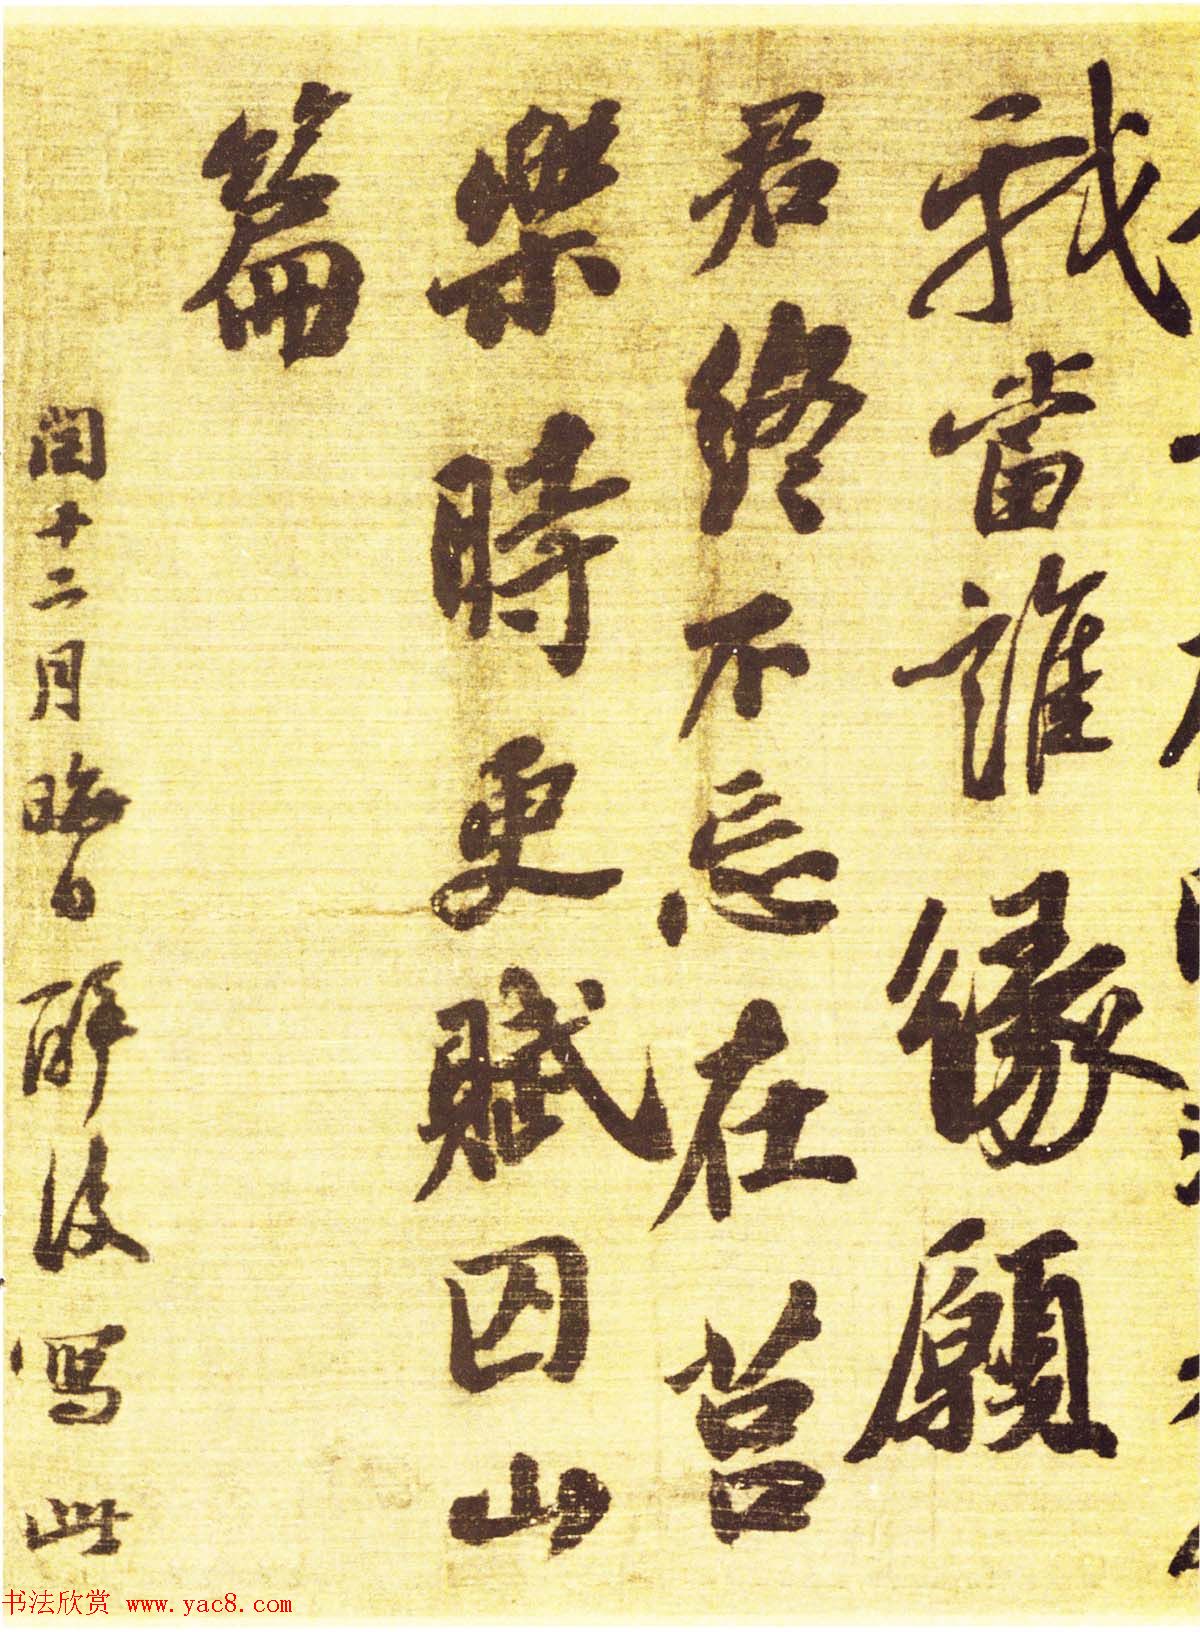 我當誰緣願
君終不忘在莒
樂時更賦囚山
篇
閏十二月晦日醉後寫此
书法欣赏 www.yac8.com